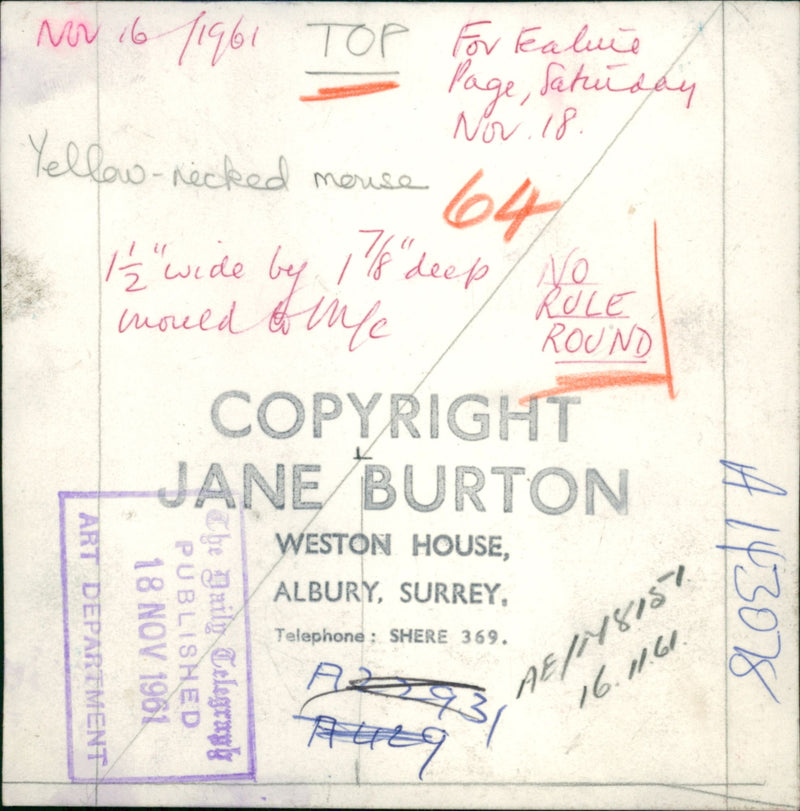 Nov 16/1961
TOP
For Feature
Page, Saturday
Nov. 18.
Yellow-necked mouse
64
1 1/2" wide by 1 7/8" deep
mould to M/c
NO
RULE
ROUND
COPYRIGHT
JANE BURTON
WESTON HOUSE,
ALBURY, SURREY.
Telephone: SHERE 369.
The Daily Telegraph
PUBLISHED
18 NOV 1961
ART DEPARTMENT
AE/M8151.
16.11.61.
A 143078